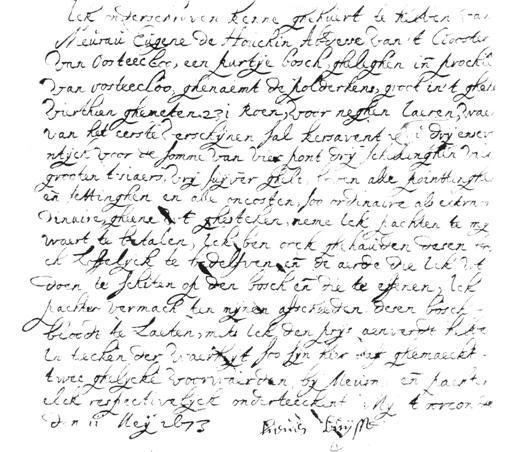 Ick onderschreven kenne ghehuert te hebben van
Mevrau Eugene de Houchin Abdesse van't Clooster
van Oosteecloo, een partje bosch, gheleghen in prochie
van oosteecloo, ghenaemt de polderkens, groot in't ghe
ghemeten 231 Roen, voor neghen Iaeren, waer
van het eerste verschijnen sal kersavent
voor de somme van vier pont drij schelinghen
grooten t'siaers, vrij suijver ghelt, boven alle pointinghe
en settinghen en alle oncosten, soo ordinaire als extraor
dinaire, gheene uijt ghesteken, neme Ick pachter te mij
waert te betalen, Ick ben oock ghehauden desen
te delven, en de aerde die Ick uijt
doen te schieten op den bosch en die te effenen, Ick
pachter vermach ten mijnen afscheeden desen bosch
bloodt te Laeten, mits Ick den prijs aenverdt hebbe
In teecken der Waerheijt soo sijn hier af ghemaeckt
twee ghelijcke voorwaerden, bij Mevrau en pachter
elck respectivelijck onderteeckent Mij t
den 11 Meij 1673